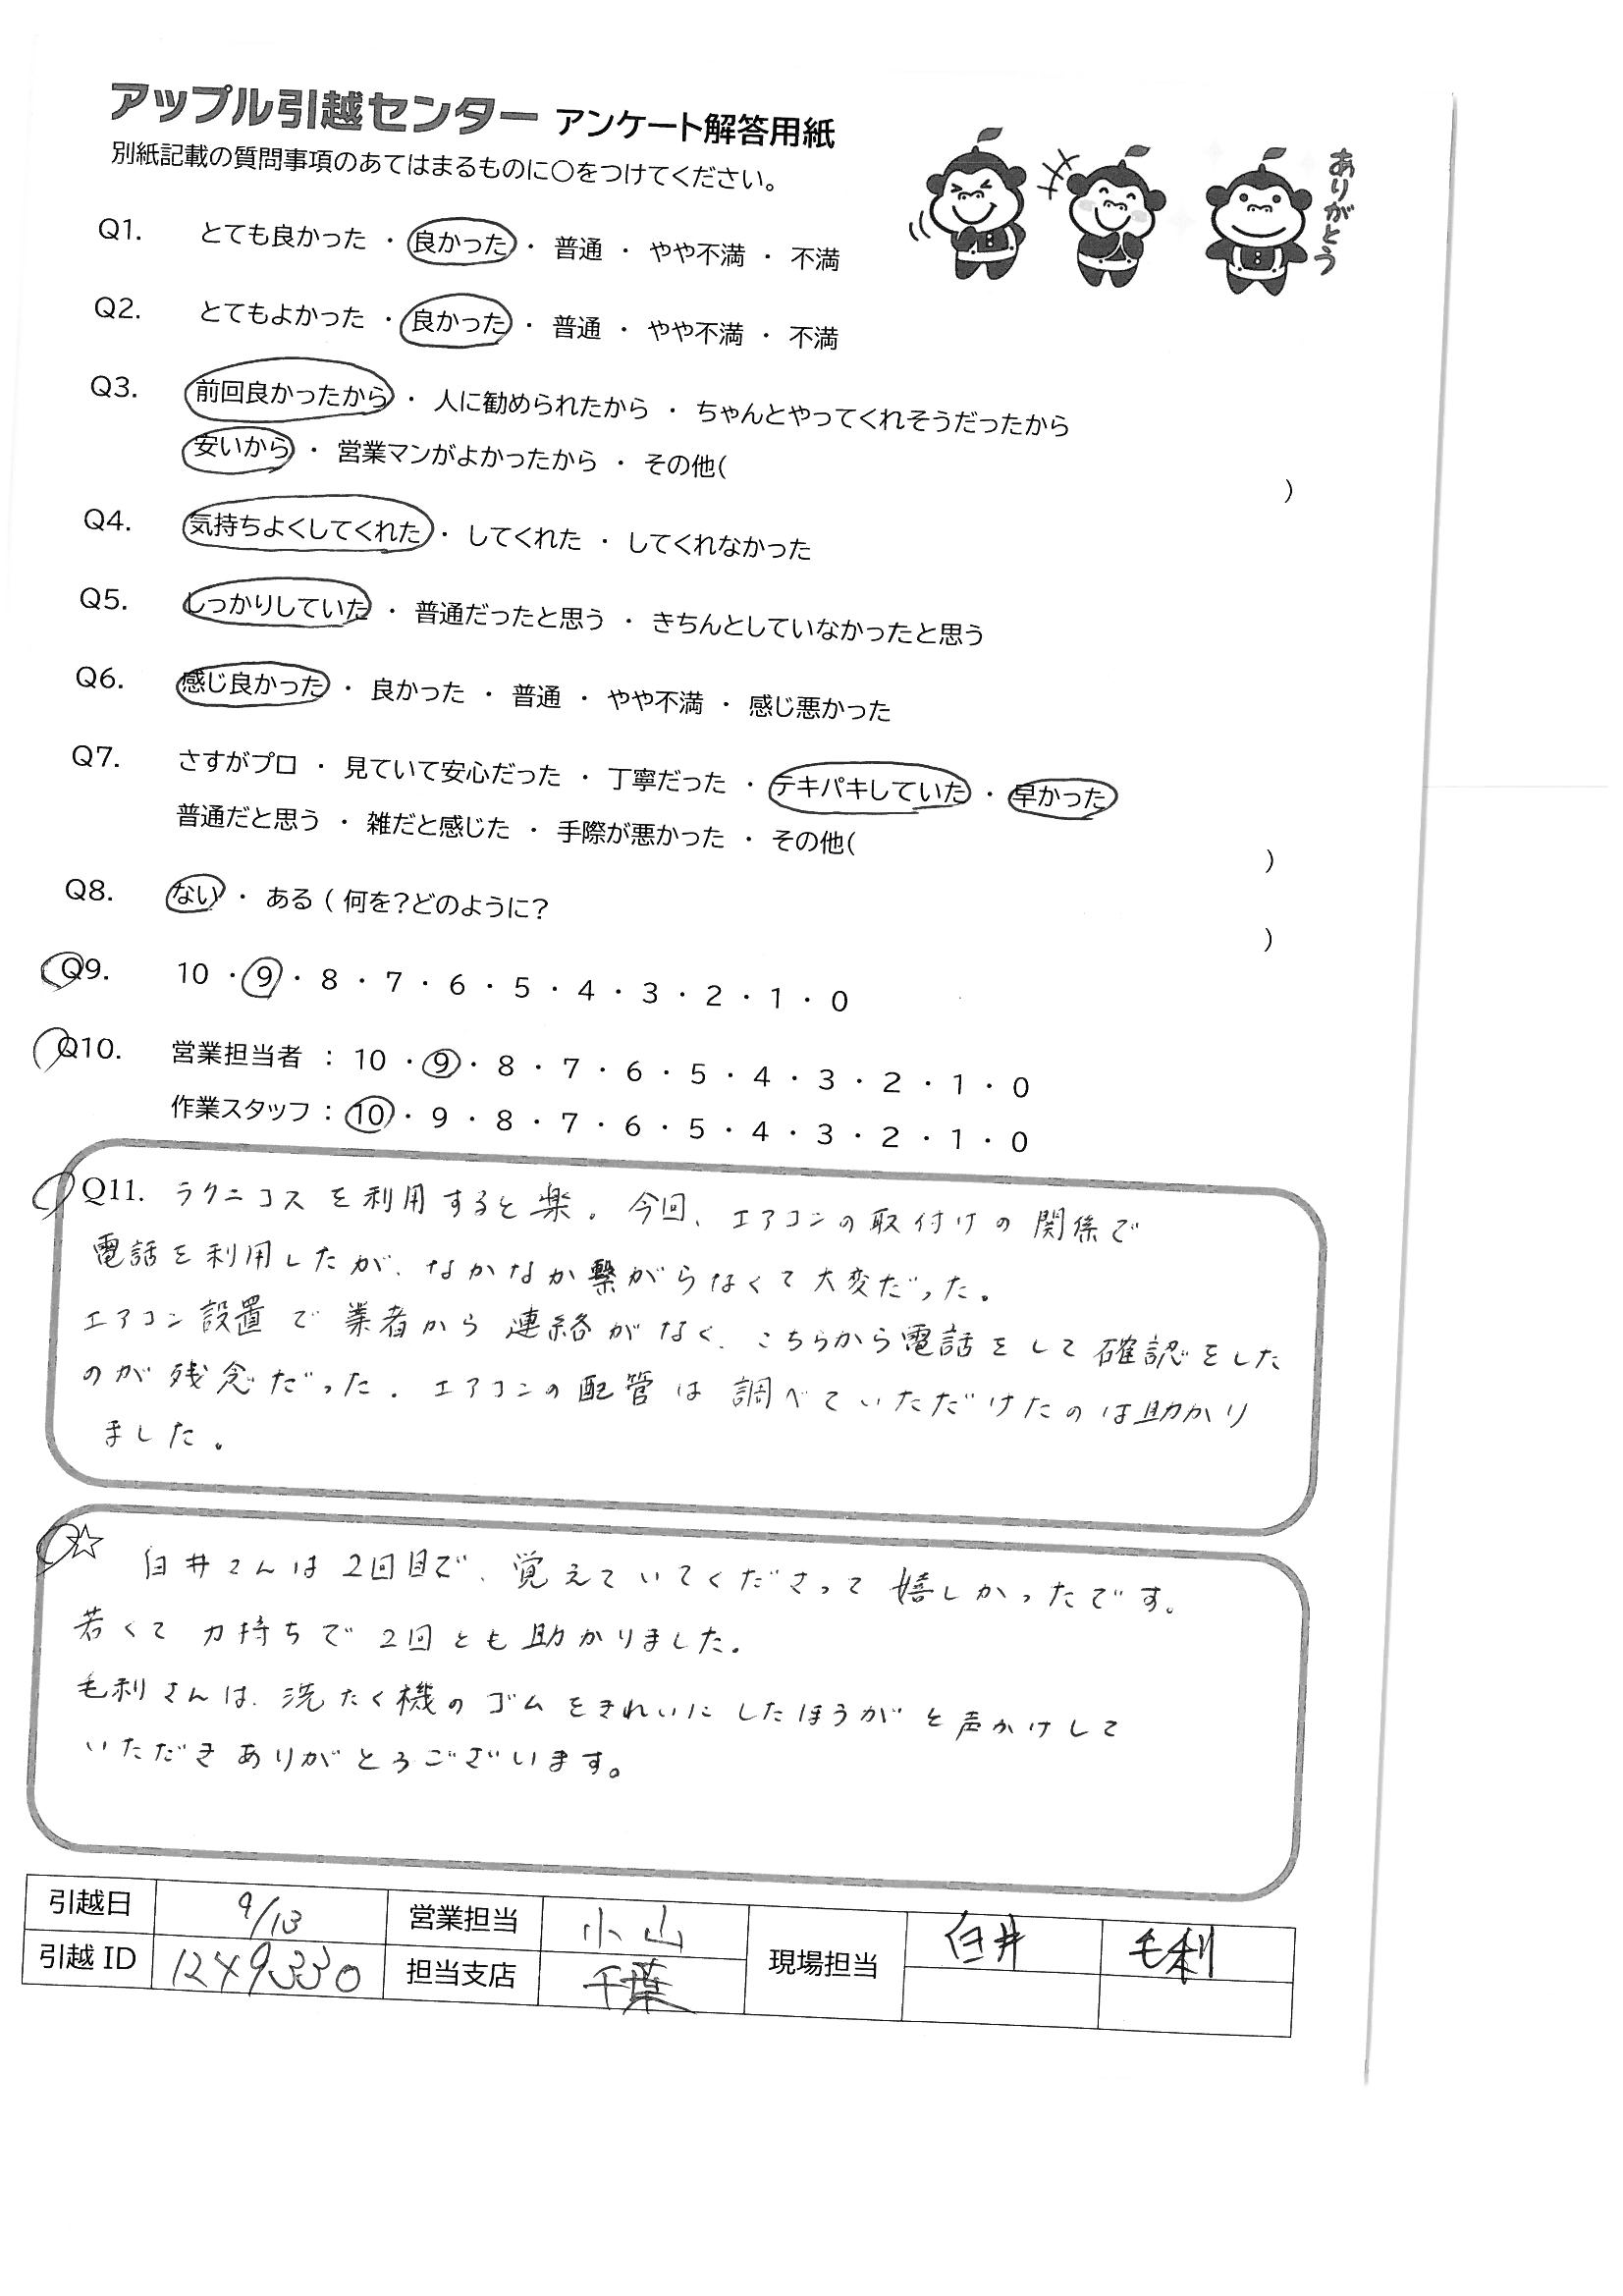 アップル引越センター アンケート解答用紙
別紙記載の質問事項のあてはまるものに○をつけてください。
ありがとう
Q1. とても良かった ・ 良かった ・ 普通 ・ やや不満 ・ 不満
Q2. とてもよかった ・ 良かった ・ 普通 ・ やや不満 ・ 不満
Q3. 前回良かったから ・ 人に勧められたから ・ ちゃんとやってくれそうだったから
安いから ・ 営業マンがよかったから ・ その他( )
Q4. 気持ちよくしてくれた ・ してくれた ・ してくれなかった
Q5. しっかりしていた ・ 普通だったと思う ・ きちんとしていなかったと思う
Q6. 感じ良かった ・ 良かった ・ 普通 ・ やや不満 ・ 感じ悪かった
Q7. さすがプロ ・ 見ていて安心だった ・ 丁寧だった ・ テキパキしていた ・ 早かった
普通だと思う ・ 雑だと感じた ・ 手際が悪かった ・ その他( )
Q8. ない ・ ある ( 何を?どのように? )
Q9. 10 ・ 9 ・ 8 ・ 7 ・ 6 ・ 5 ・ 4 ・ 3 ・ 2 ・ 1 ・ 0
Q10. 営業担当者 : 10 ・ 9 ・ 8 ・ 7 ・ 6 ・ 5 ・ 4 ・ 3 ・ 2 ・ 1 ・ 0
作業スタッフ : 10 ・ 9 ・ 8 ・ 7 ・ 6 ・ 5 ・ 4 ・ 3 ・ 2 ・ 1 ・ 0
Q11. ラクニコスを利用すると楽。今回、エアコンの取付けの関係で
電話を利用したが、なかなか繋がらなくて大変だった。
エアコン設置で業者から連絡がなく、こちらから電話をして確認をした
のが残念だった。エアコンの配管は調べていただけたのは助かり
ました。
☆ 臼井さんは2回目で、覚えていてくださって嬉しかったです。
若くて力持ちで2回とも助かりました。
毛利さんは、洗たく機のゴムをきれいにしたほうがと声かけして
いただきありがとうございます。
引越日 9/13 営業担当 小山 現場担当 臼井 毛利
引越 ID 1249330 担当支店 千葉